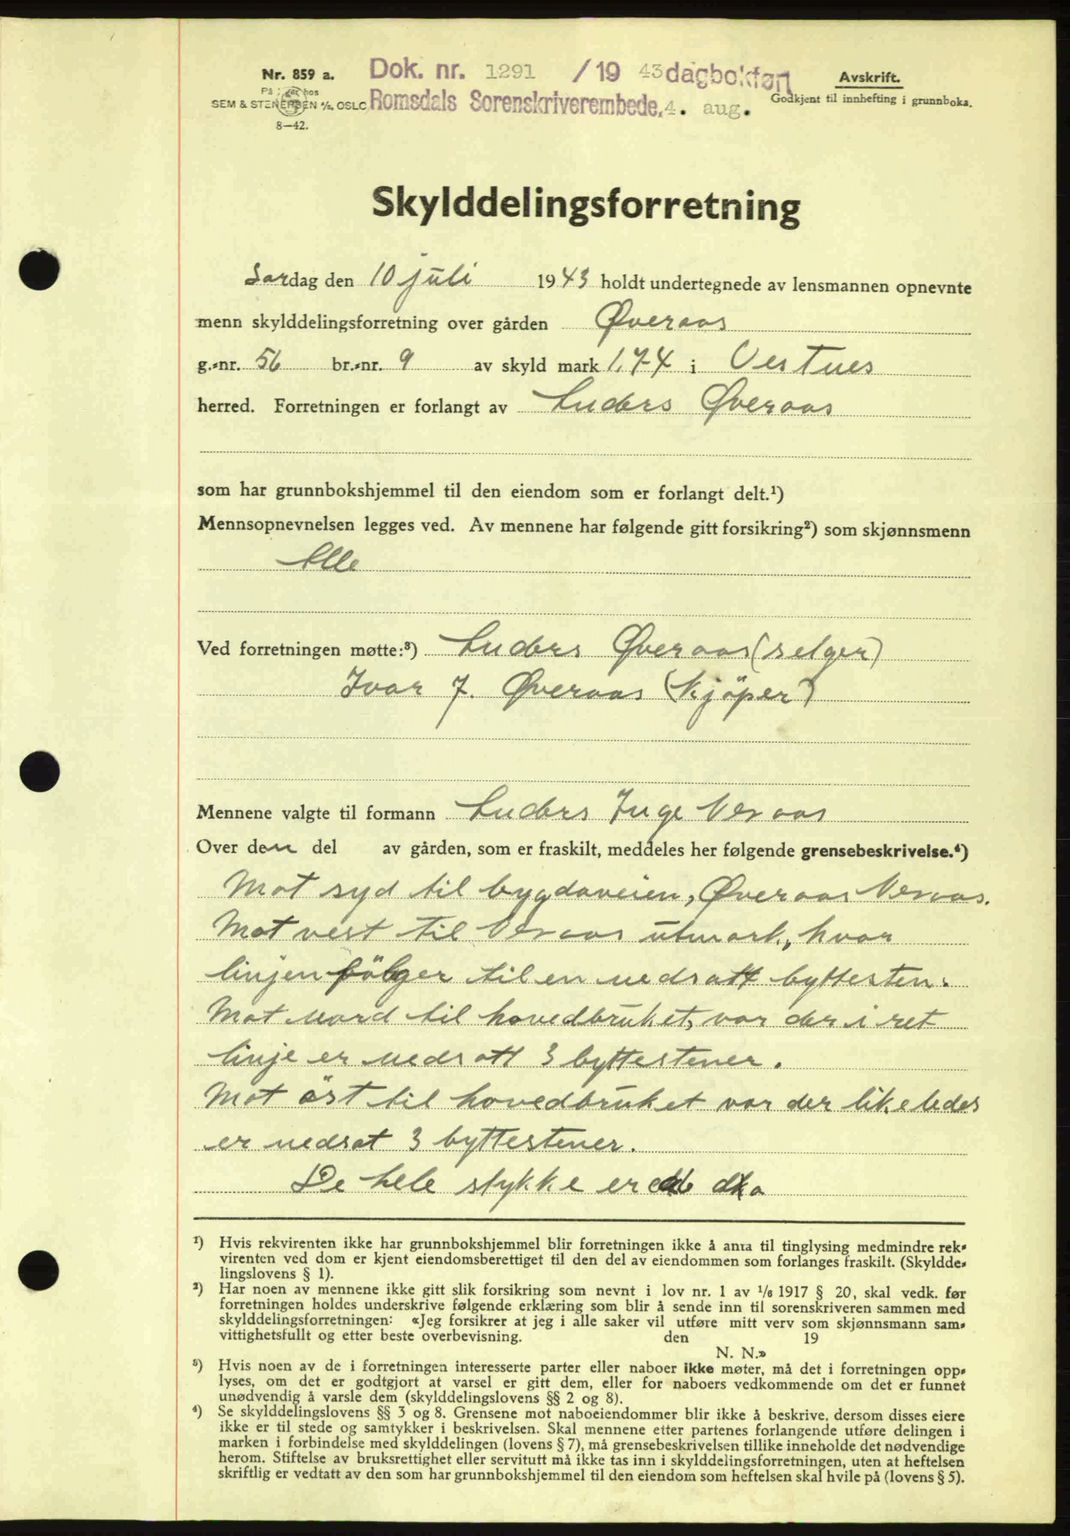 Nr. 859 a.
På lager hos
SEM & STENERSEN A/S, OSLO
8—42.
Dok. nr. 1291 /19 43 dagbokført
Romsdals Sorenskriverembede, 4. aug.
Avskrift.
Godkjent til innhefting i grunnboka.
Skylddelingsforretning
Lørdag den 10 juli 1943 holdt undertegnede av lensmannen opnevnte
menn skylddelingsforretning over gården Øveraas
g.-nr. 56 br.-nr. 9 av skyld mark 1.74 i Vestnes
herred. Forretningen er forlangt av Anders Øveraas
som har grunnbokshjemmel til den eiendom som er forlangt delt.¹)
Mennsopnevnelsen legges ved. Av mennene har følgende gitt forsikring²) som skjønnsmenn
Alle
Ved forretningen møtte:³) Anders Øveraas (selger)
Ivar J. Øveraas (kjöper)
Mennene valgte til formann Anders Inge Veraas
Over den del av gården, som er fraskilt, meddeles her følgende grensebeskrivelse.⁴)
Mot syd til bygdaveien, Øveraas Veraas.
Mot vest til Veraas utmark, hvor
linjen fölger til en nedsatt byttesten.
Mot nord til hovedbruket, vor der i ret
linje er nedsatt 3 byttestener.
Mot öst til hovedbruket vor der likeledes
er nedsat 3 byttestener.
De hele stykke er
¹) Hvis rekvirenten ikke har grunnbokshjemmel blir forretningen ikke å anta til tinglysing medmindre rek-
virenten ved dom er kjent eiendomsberettiget til den del av eiendommen som forlanges fraskilt. (Skyldde-
lingslovens § 1).
²) Har noen av mennene ikke gitt slik forsikring som nevnt i lov nr. 1 av 1/6 1917 § 20, skal vedk. før
forretningen holdes underskrive følgende erklæring som blir å sende inn til sorenskriveren sammen med
skylddelingsforretningen: «Jeg forsikrer at jeg i alle saker vil utføre mitt verv som skjønnsmann sam-
vittighetsfullt og etter beste overbevisning. den 19
N. N.»
³) Hvis noen av de i forretningen interesserte parter eller naboer ikke møter, må det i forretningen opp-
lyses, om det er godtgjort at varsel er gitt dem, eller for naboers vedkommende om det er funnet
unødvendig å varsle dem (skylddelingslovens §§ 2 og 8).
⁴) Se skylddelingslovens §§ 3 og 8. Grensene mot naboeiendommer blir ikke å beskrive, dersom disses eiere
ikke er til stede og samtykker i beskrivelsen. Skal mennene etter partenes forlangende utføre delingen i
marken i forbindelse med skylddelingen (lovens § 7), må grensebeskrivelsen tillike inneholde det nødvendige
herom. Stiftelse av bruksrettighet eller servitutt må ikke tas inn i skylddelingsforretningen, uten at heftelsen
skriftlig er vedtatt av den som har grunnbokshjemmel til den eiendom som heftelsen skal hvile på (lovens § 5).